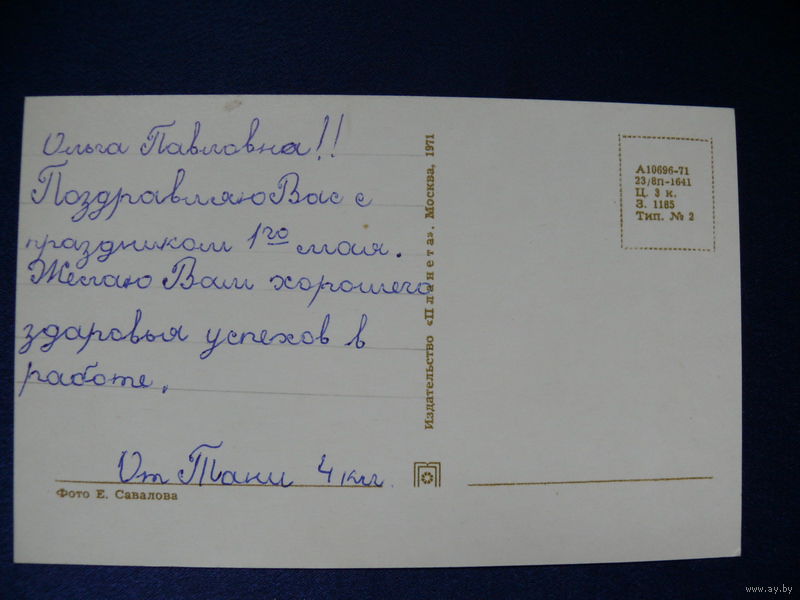 Ольга Павловна!!
Поздравляю Вас с
праздником 1го мая.
Желаю Вам хорошего
здаровья успехов в
работе.
От Тани 4 кл
Фото Е. Савалова
Издательство «Планета». Москва, 1971
А10696-71
23/8п-1641
Ц. 3 к.
З. 1185
Тип. № 2
www.ay.by